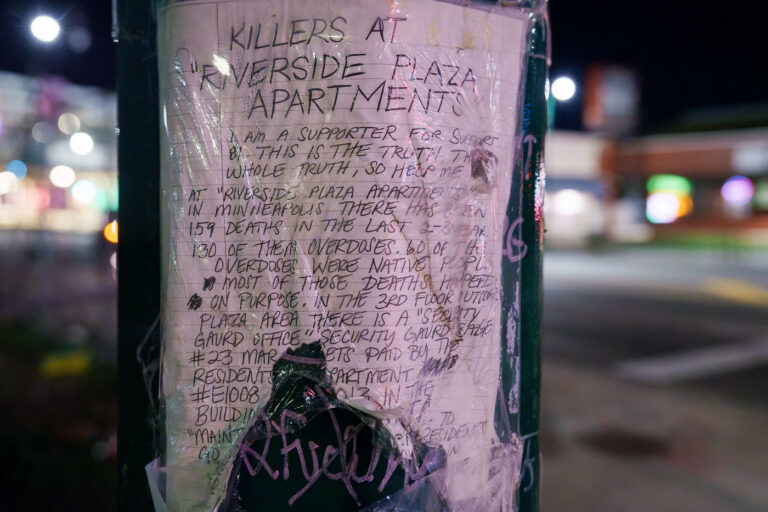 KILLERS AT
"RIVERSIDE PLAZA
APARTMENTS
I AM A SUPPORTER FOR SUPPORT
BY THIS IS THE TRUTH TH
WHOLE TRUTH, SO HELP ME
AT "RIVERSIDE PLAZA APARTMENTS"
IN MINNEAPOLIS. THERE HAS BEEN
159 DEATHS IN THE LAST 2-3
130 OF THEM OVERDOSES. 60 OF THE
OVERDOSES WERE NATIVE PEOPL
MOST OF THOSE DEATHS
ON PURPOSE. IN THE 3RD FLOOR
PLAZA AREA THERE IS A "SECURITY
GAURD OFFICE" SECURITY GAURD BADGE
#23 MAR ETS PAID BY
RESIDENTS PARTMENT
#E1008 013 IN THE
BUILDIN
"MAINT TO
GO RESIDENT
IN